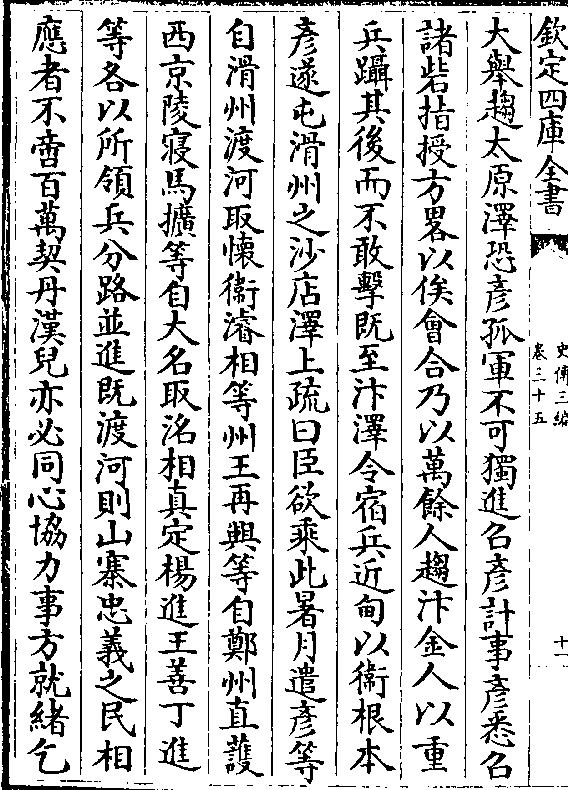 欽定四庫全書
史傳三編
卷三十五
十一
大舉趨太原澤恐彥孤軍不可獨進召彥計事彥悉召
諸砦指授方畧以俟會合乃以萬餘人趨汴金人以重
兵躡其後而不敢擊既至汴澤令宿兵近甸以衛根本
彥遂屯滑州之沙店澤上疏曰臣欲乘此暑月遣彥等
自滑州渡河取懷衛濬相等州王再興等自鄭州直䕶
西京陵寢馬擴等自大名取洺相真定楊進王善丁進
等各以所領兵分路並進既渡河則山寨忠義之民相
應者不啻百萬契丹漢兒亦必同心協力事方就緒乞